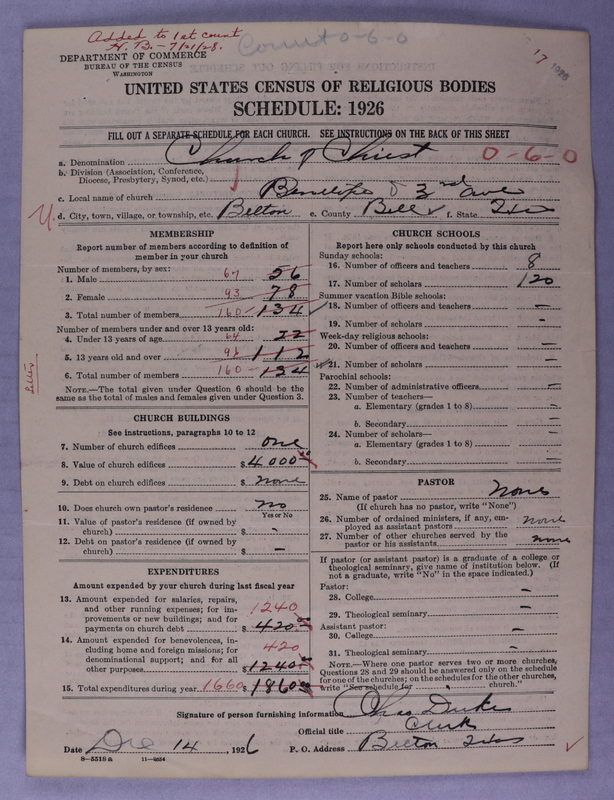 Added to 1st count
H. B. - 7/21/28.
Count 0-6-0
17 1926
DEPARTMENT OF COMMERCE
BUREAU OF THE CENSUS
WASHINGTON
UNITED STATES CENSUS OF RELIGIOUS BODIES
SCHEDULE: 1926
FILL OUT A SEPARATE SCHEDULE FOR EACH CHURCH. SEE INSTRUCTIONS ON THE BACK OF THIS SHEET
a. Denomination Church of Christ 0-6-0
b. Division (Association, Conference,
Diocese, Presbytery, Synod, etc.)
c. Local name of church Penelope & 3rd ave
d. City, town, village, or township, etc. Belton e. County Bell f. State Tex
MEMBERSHIP
Report number of members according to definition of
member in your church
Number of members, by sex:
1. Male 67 56
2. Female 93 78
3. Total number of members 160 134
Number of members under and over 13 years old:
4. Under 13 years of age 64 22
5. 13 years old and over 96 112
6. Total number of members 160 134
NOTE.—The total given under Question 6 should be the
same as the total of males and females given under Question 3.
Letter
CHURCH BUILDINGS
See instructions, paragraphs 10 to 12
7. Number of church edifices one
8. Value of church edifices $ 4000 00
9. Debt on church edifices $ none
10. Does church own pastor's residence no
Yes or No
11. Value of pastor's residence (if owned by
church) $ -
12. Debt on pastor's residence (if owned by
church) $ -
EXPENDITURES
Amount expended by your church during last fiscal year
13. Amount expended for salaries, repairs,
and other running expenses; for im-
provements or new buildings; and for
payments on church debt 1240 $ 420.00
14. Amount expended for benevolences, in-
cluding home and foreign missions; for
denominational support; and for all
other purposes 420 $ 1240.00
15. Total expenditures during year 1660 $ 1860 00
CHURCH SCHOOLS
Report here only schools conducted by this church
Sunday schools:
16. Number of officers and teachers 8
17. Number of scholars 120
Summer vacation Bible schools:
18. Number of officers and teachers -
19. Number of scholars -
Week-day religious schools:
20. Number of officers and teachers -
21. Number of scholars -
Parochial schools:
22. Number of administrative officers -
23. Number of teachers—
a. Elementary (grades 1 to 8) -
b. Secondary -
24. Number of scholars—
a. Elementary (grades 1 to 8) -
b. Secondary -
PASTOR
25. Name of pastor None
(If church has no pastor, write "None")
26. Number of ordained ministers, if any, em-
ployed as assistant pastors none
27. Number of other churches served by the
pastor or his assistants none
If pastor (or assistant pastor) is a graduate of a college or
theological seminary, give name of institution below. (If
not a graduate, write "No" in the space indicated.)
Pastor:
28. College -
29. Theological seminary -
Assistant pastor:
30. College -
31. Theological seminary -
NOTE.—Where one pastor serves two or more churches,
Questions 28 and 29 should be answered only on the schedule
for one of the churches; on the schedules for the other churches,
write "See schedule for church."
Signature of person furnishing information Chas Dukes
Official title Clerk
Date Dec 14, 1926 P. O. Address Belton Texas
8—5518a 11—6654